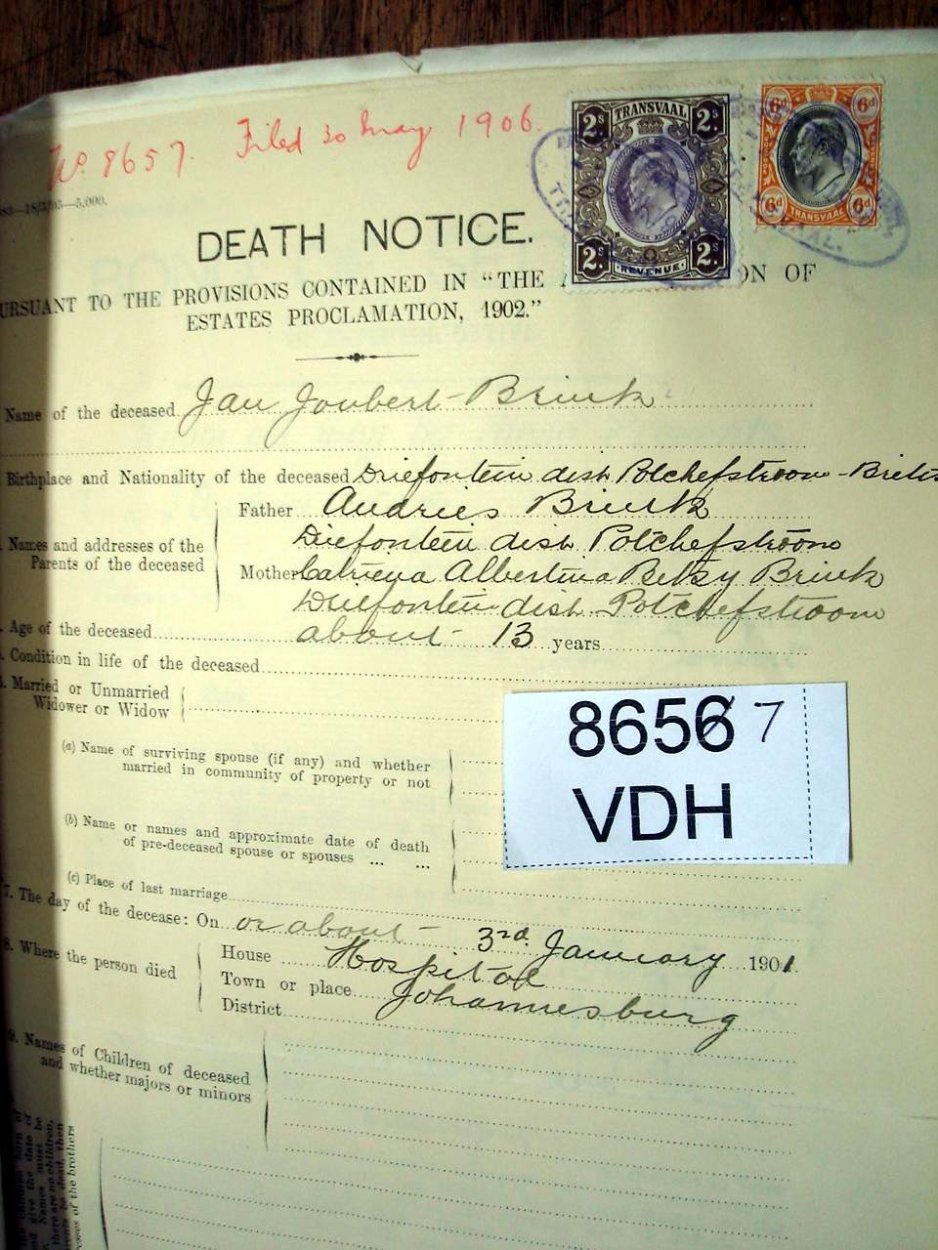 No. 8657. Filed 30 May 1906.
—5,000.
DEATH NOTICE.
URSUANT TO THE PROVISIONS CONTAINED IN "THE A ON OF
ESTATES PROCLAMATION, 1902."
2s TRANSVAAL 2s
2s REVENUE 2s
6d 6d
6d TRANSVAAL 6d
Name of the deceased Jan Joubert Brink
Birthplace and Nationality of the deceased Driefontein dist Potchefstroom - Britis
Names and addresses of the Parents of the deceased
Father Andries Brink
Driefontein dist Potchefstroom
Mother Catriena Albertina Betsy Brink
Driefontein dist Potchefstroom
Age of the deceased about 13 years
Condition in life of the deceased
Married or Unmarried
Widower or Widow
(a) Name of surviving spouse (if any) and whether
married in community of property or not
(b) Name or names and approximate date of death
of pre-deceased spouse or spouses ... ...
(c) Place of last marriage
8656 7
VDH
7. The day of the decease: On or about 3rd January 1901
8. Where the person died
House Hospital
Town or place Johannesburg
District
9. Names of Children of deceased
and whether majors or minors